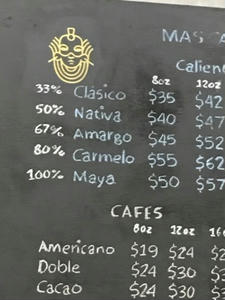 MAS CA
Calien
8oz 12oz
33% Clásico $35 $42
50% Nativa $40 $47
67% Amargo $45 $52
80% Carmelo $55 $62
100% Maya $50 $57
CAFES
8oz 12oz 16
Americano $19 $24 $2
Doble $24 $30 $
Cacao $24 $30 $